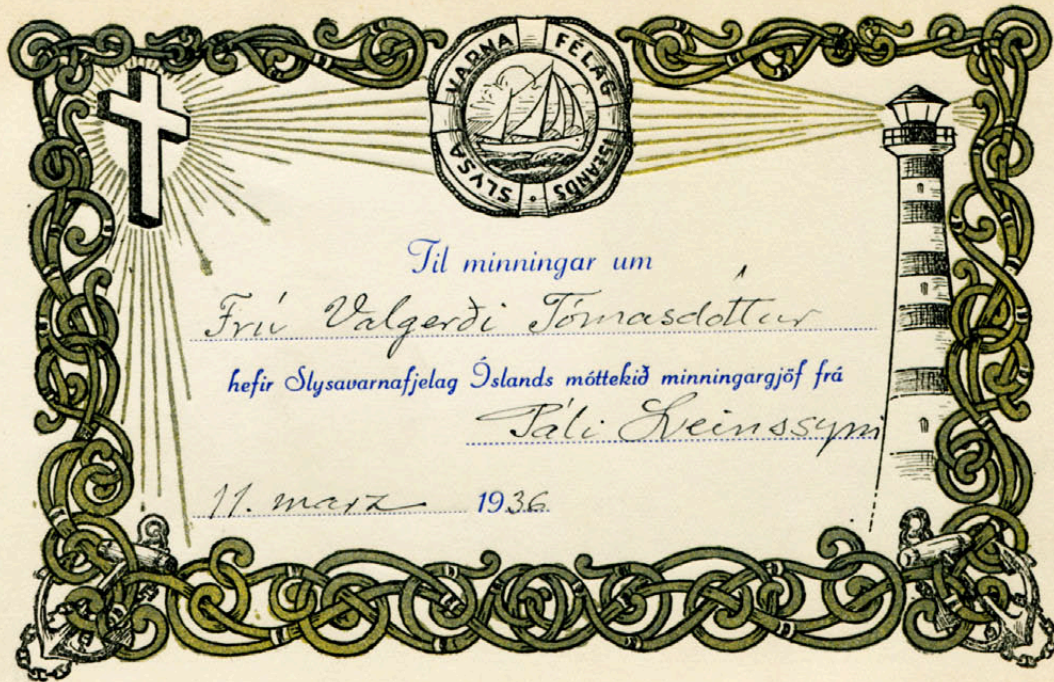 SLYSA VARNA FÉLAG ÍSLANDS
Til minningar um
Frú Valgerði Tómasdóttur
hefir Slysavarnafjelag Íslands móttekið minningargjöf frá
Páli Sveinssyni
11. marz 1936